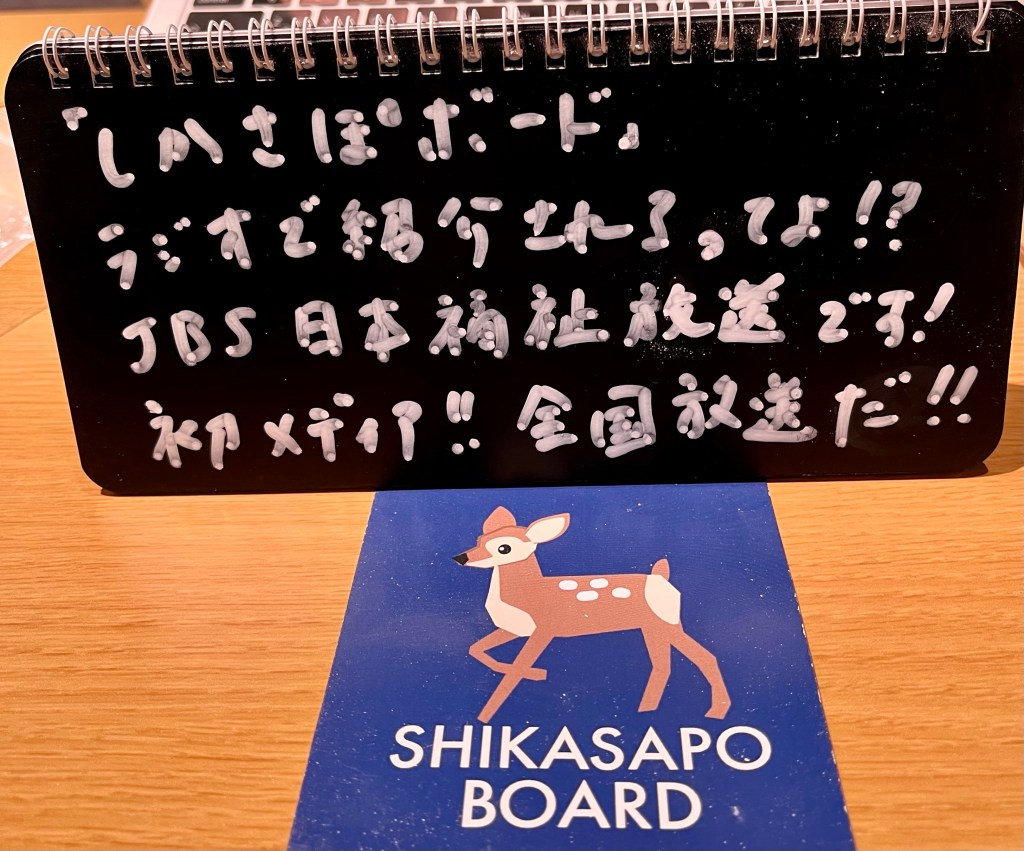 『しかさぽボード』
ラジオで紹介されるってよ!?
JBS 日本福祉放送です!
初メディア!! 全国放送だ!!
SHIKASAPO
BOARD